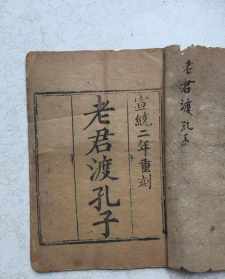 老君渡孔子
宣統二年重刻
老君渡孔子